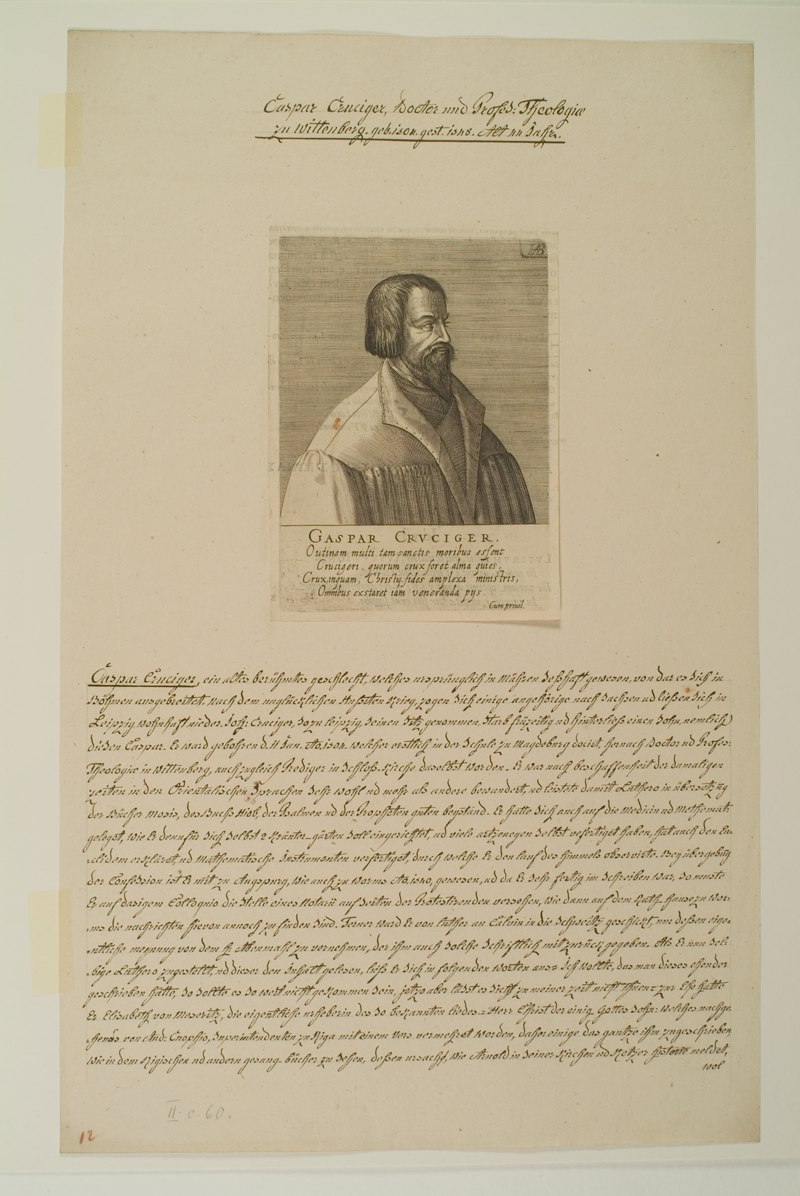 Caspar Cruciger, Doctor und Profess: Theologiæ
zu Wittenberg. geb. 1504. gest. 1548. Alt 44 Jahr.
HB
GASPAR CRVCIGER.
Outinam multi tam sanctis moribus essent
Crucigeri, quorum crux foret alma quies,
Crux inquam, Christi, fides amplexa ministris,
Omnibus exstaret iam veneranda pijs
Cum privil.
Caspar Cruciger, ein altes berühmtes geschlecht, welches ursprünglich in Mähren seßhafft gewesen, von da es sich in
Böhmen ausgebreitet. Nach dem unglücklichen Hußiten Krieg, zogen sich einige angehörige nach Sachsen und ließen sich in
Leipzig wohnhafft nieder. Joh: Cruciger, so zu Leipzig seinen Sitz genommen, starb frühzeitig und hinterließ einen Sohn, nemlich
diesen Caspar. Er ward gebohren d. 1504. welcher erstlich in der Schule zu Magdeburg docirt, hernach Doctor und Profess:
Theologiæ in Wittenberg, auch zugleich Prediger in Schloß-Kirche daselbst worden. Er war nach beschaffenheit der damaligen
zeiten in den Orientalischen Sprachen sehr wohl und mehr als andere bewandert, und leistete damit Luthero in übersetzung
der Bücher Mosis, des Buchs Hiob, der Psalmen und der Propheten guten beystand. Er hatte sich auch auf die Medicin und Mathemat:
gelegt, wie Er denn für sich selbst 2 Kräuter-gärten soll eingerichtet, und viele artzeneyen selbst verfertiget haben, hat auch den Eu-
clidem erklärt, und Mathematische Instrumenten verfertiget, durch welche Er den lauf des himmels observirte. Bey übergebung
der Confession ist Er mit zu Augspurg, wie auch zu Worms 1540, gewesen, und da Er sehr fertig im schreiben war, so muste
Er auf dasigem Colloquio die Stelle eines Notarii auf seiten der Protestirenden versehen, wie dann auf dem Rath-Hause zu Wor-
ms die nachrichten hievon annoch zu finden sind. Ferner ward Er von Luther an Calvin in die Schweitz geschickt, um deßen eige-
ntliche meynung von dem H. Abendmahl zu vernehmen, der ihm auch solche schrifftlich mit zurück gegeben. Als Er nun sel-
bige Luthero zugestellt, und dieser den Inhalt gelesen, ließ Er sich in folgenden worten aus: Ich wollte, das man dieses ehender
geschrieben hätte, so sollte es so weit nicht gekommen sein, jetzo aber läßt es sich zu meiner zeit nicht thun. Zur Ehe hatte
Er Elisabeth von Meseritz, die eigentliche urheberin des so bekannten liedes: Herr Christ der einig Gottes Sohn: welches nachge-
hends von And: Cnophio, Superintendenten zu Riga mit einem vers vermehret worden, daher einige das gantze ihm zugeschrieben,
wie in dem Rigischen und andern gesang-bücher zu sehen, deßen ursach, wie Arnold in seiner Kirchen und Ketzer historie meldet,
wol
II. c. 60.
12